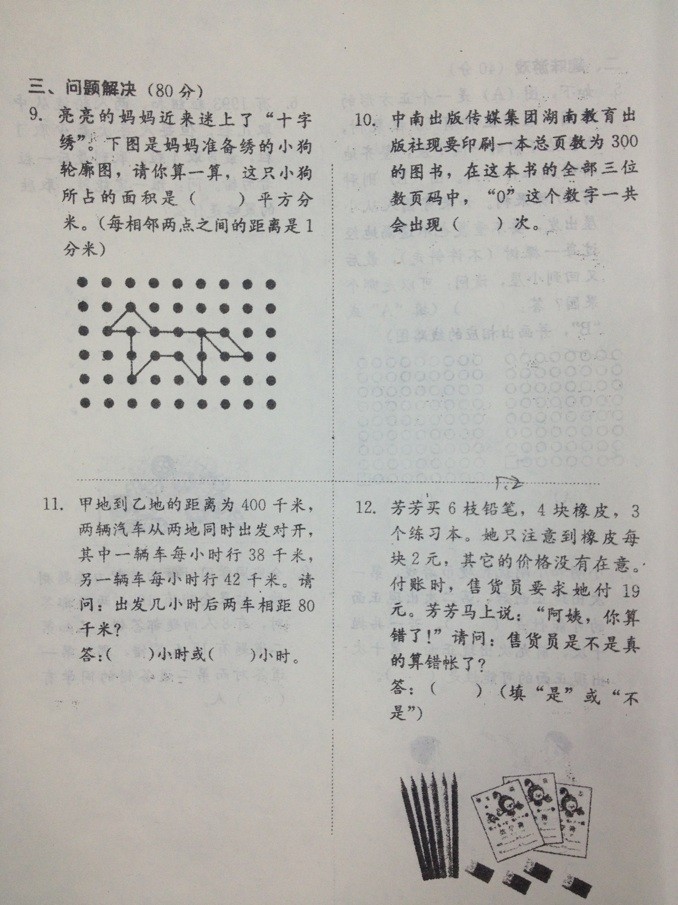 三、问题解决（80分）
9. 亮亮的妈妈近来迷上了“十字
绣”。下图是妈妈准备绣的小狗
轮廓图，请你算一算，这只小狗
所占的面积是（　　）平方分
米。（每相邻两点之间的距离是1
分米）
10. 中南出版传媒集团湖南教育出
版社现要印刷一本总页数为300
的图书，在这本书的全部三位
数页码中，“0”这个数字一共
会出现（　　）次。
11. 甲地到乙地的距离为400千米，
两辆汽车从两地同时出发对开，
其中一辆车每小时行38千米，
另一辆车每小时行42千米。请
问：出发几小时后两车相距80
千米？
答：（　　）小时或（　　）小时。
12. 芳芳买6枝铅笔，4块橡皮，3
个练习本。她只注意到橡皮每
块2元，其它的价格没有在意。
付账时，售货员要求她付19
元。芳芳马上说：“阿姨，你算
错了！”请问：售货员是不是真
的算错帐了？
答：（　　）（填“是”或“不
是”）